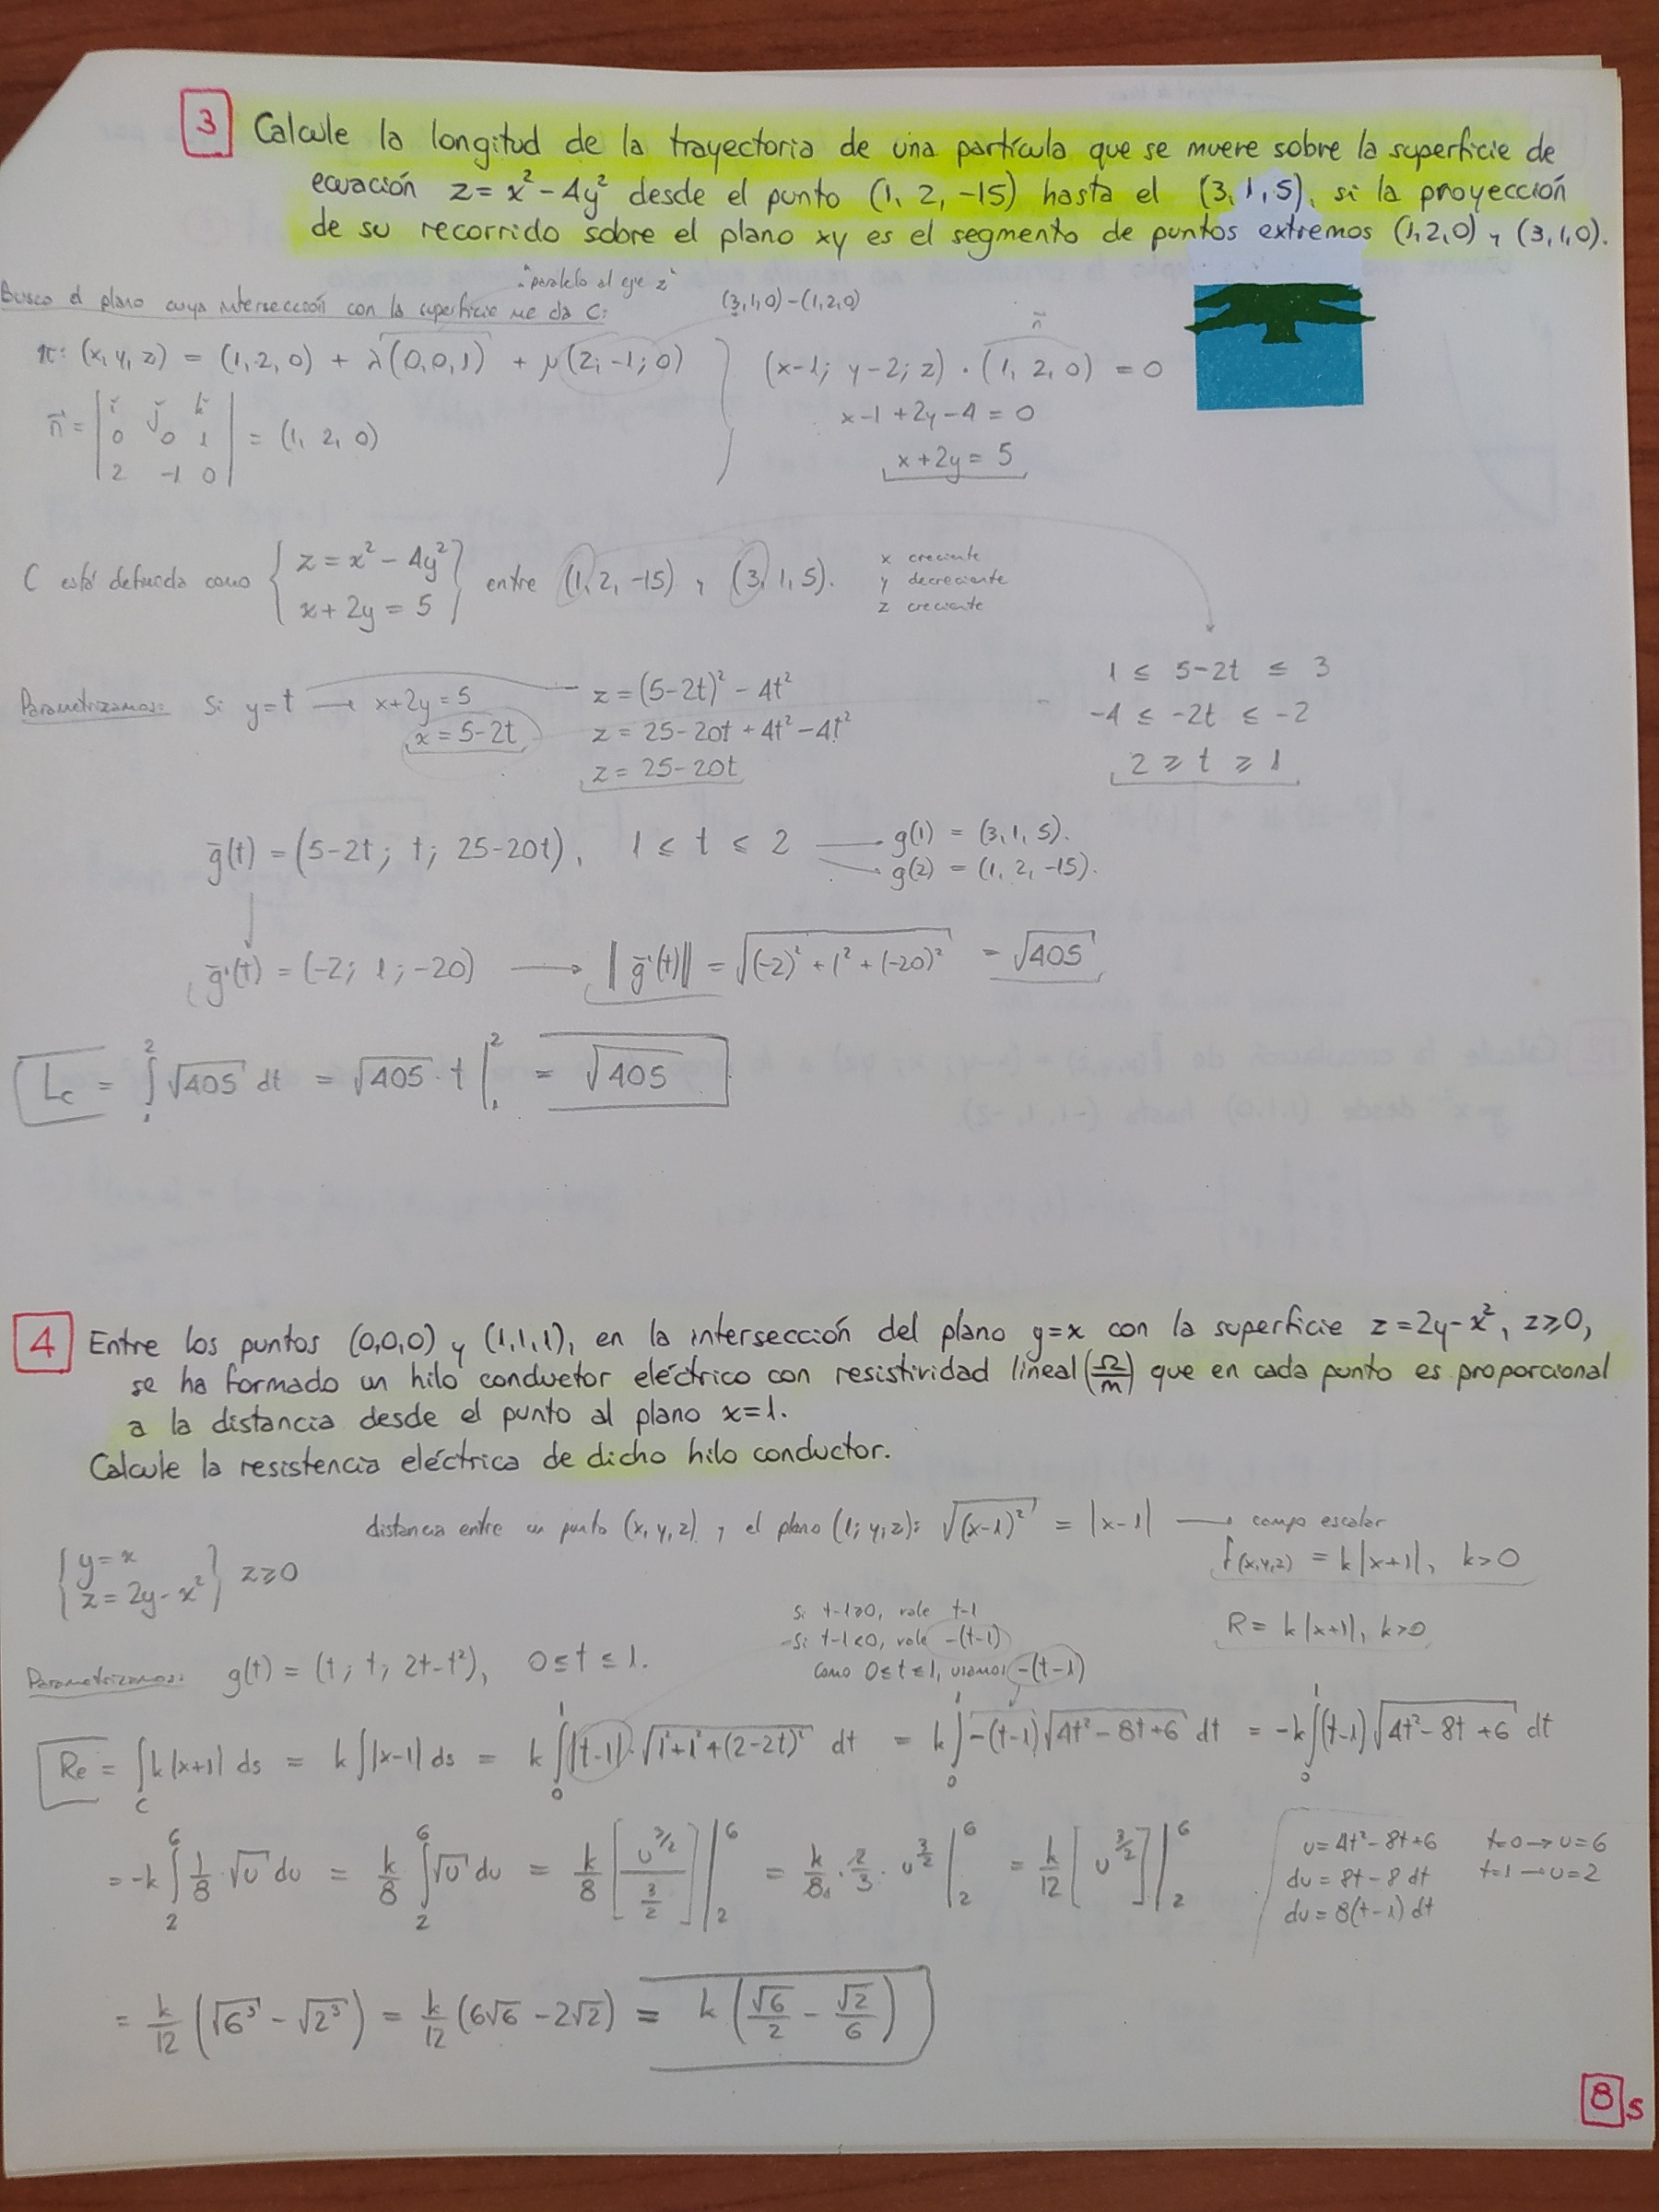 3 Calcule la longitud de la trayectoria de una partícula que se mueve sobre la superficie de
ecuación z = x² - 4y² desde el punto (1, 2, -15) hasta el (3, 1, 5), si la proyección
de su recorrido sobre el plano xy es el segmento de puntos extremos (1,2,0) y (3,1,0).
"paralelo al eje z"
Busco el plano cuya intersección con la superficie me da C:
(3,1,0)-(1,2,0)
π: (x, y, z) = (1, 2, 0) + λ(0, 0, 1) + μ(2; -1; 0)
n̄
(x-1; y-2; z) · (1, 2, 0) = 0
n̄ = | i j k | = (1, 2, 0)
0 0 1
2 -1 0
x-1+2y-4 = 0
x+2y = 5
C está definida como { z = x² - 4y² } entre (1, 2, -15) y (3, 1, 5).
x + 2y = 5
x creciente
y decreciente
z creciente
Parametrizamos: Si y=t → x+2y = 5
x = 5-2t
z = (5-2t)² - 4t²
z = 25-20t + 4t² - 4t²
z = 25-20t
1 ≤ 5-2t ≤ 3
-4 ≤ -2t ≤ -2
2 ≥ t ≥ 1
ḡ(t) = (5-2t; t; 25-20t), 1 ≤ t ≤ 2 → g(1) = (3, 1, 5).
g(2) = (1, 2, -15).
ḡ'(t) = (-2; 1; -20) → ‖ḡ'(t)‖ = √((-2)² + 1² + (-20)²) = √405
Lc = ∫₁² √405 dt = √405 · t |₁² = √405
4 Entre los puntos (0,0,0) y (1,1,1), en la intersección del plano y=x con la superficie z=2y-x², z≥0,
se ha formado un hilo conductor eléctrico con resistividad lineal (Ω/m) que en cada punto es proporcional
a la distancia desde el punto al plano x=1.
Calcule la resistencia eléctrica de dicho hilo conductor.
distancia entre un punto (x, y, z) y el plano (1; y; z): √(x-1)² = |x-1| → campo escalar
f(x,y,z) = k|x+1|, k>0
{ y = x
z = 2y - x² } z≥0
R = k|x+1|, k>0
Si t-1≥0, vale t-1
Si t-1<0, vale -(t-1)
Como 0≤t≤1, usamos -(t-1)
Parametrizamos: g(t) = (t; t; 2t-t²), 0≤t≤1.
Re = ∫_C k|x+1| ds = k∫|x-1| ds = k∫₀¹ |t-1|·√(1²+1²+(2-2t)²) dt = k∫₀¹ -(t-1)√(4t²-8t+6) dt = -k∫₀¹ (t-1)√(4t²-8t+6) dt
= -k ∫₂⁶ 1/8 √u du = k/8 ∫₂⁶ √u du = k/8 [u^(3/2) / (3/2)] |₂⁶ = k/8 · 2/3 · u^(3/2) |₂⁶ = k/12 [u^(3/2)] |₂⁶
u = 4t²-8t+6 t=0→u=6
du = 8t-8 dt t=1→u=2
du = 8(t-1) dt
= k/12 (√6³ - √2³) = k/12 (6√6 - 2√2) = k (√6/2 - √2/6)
8s